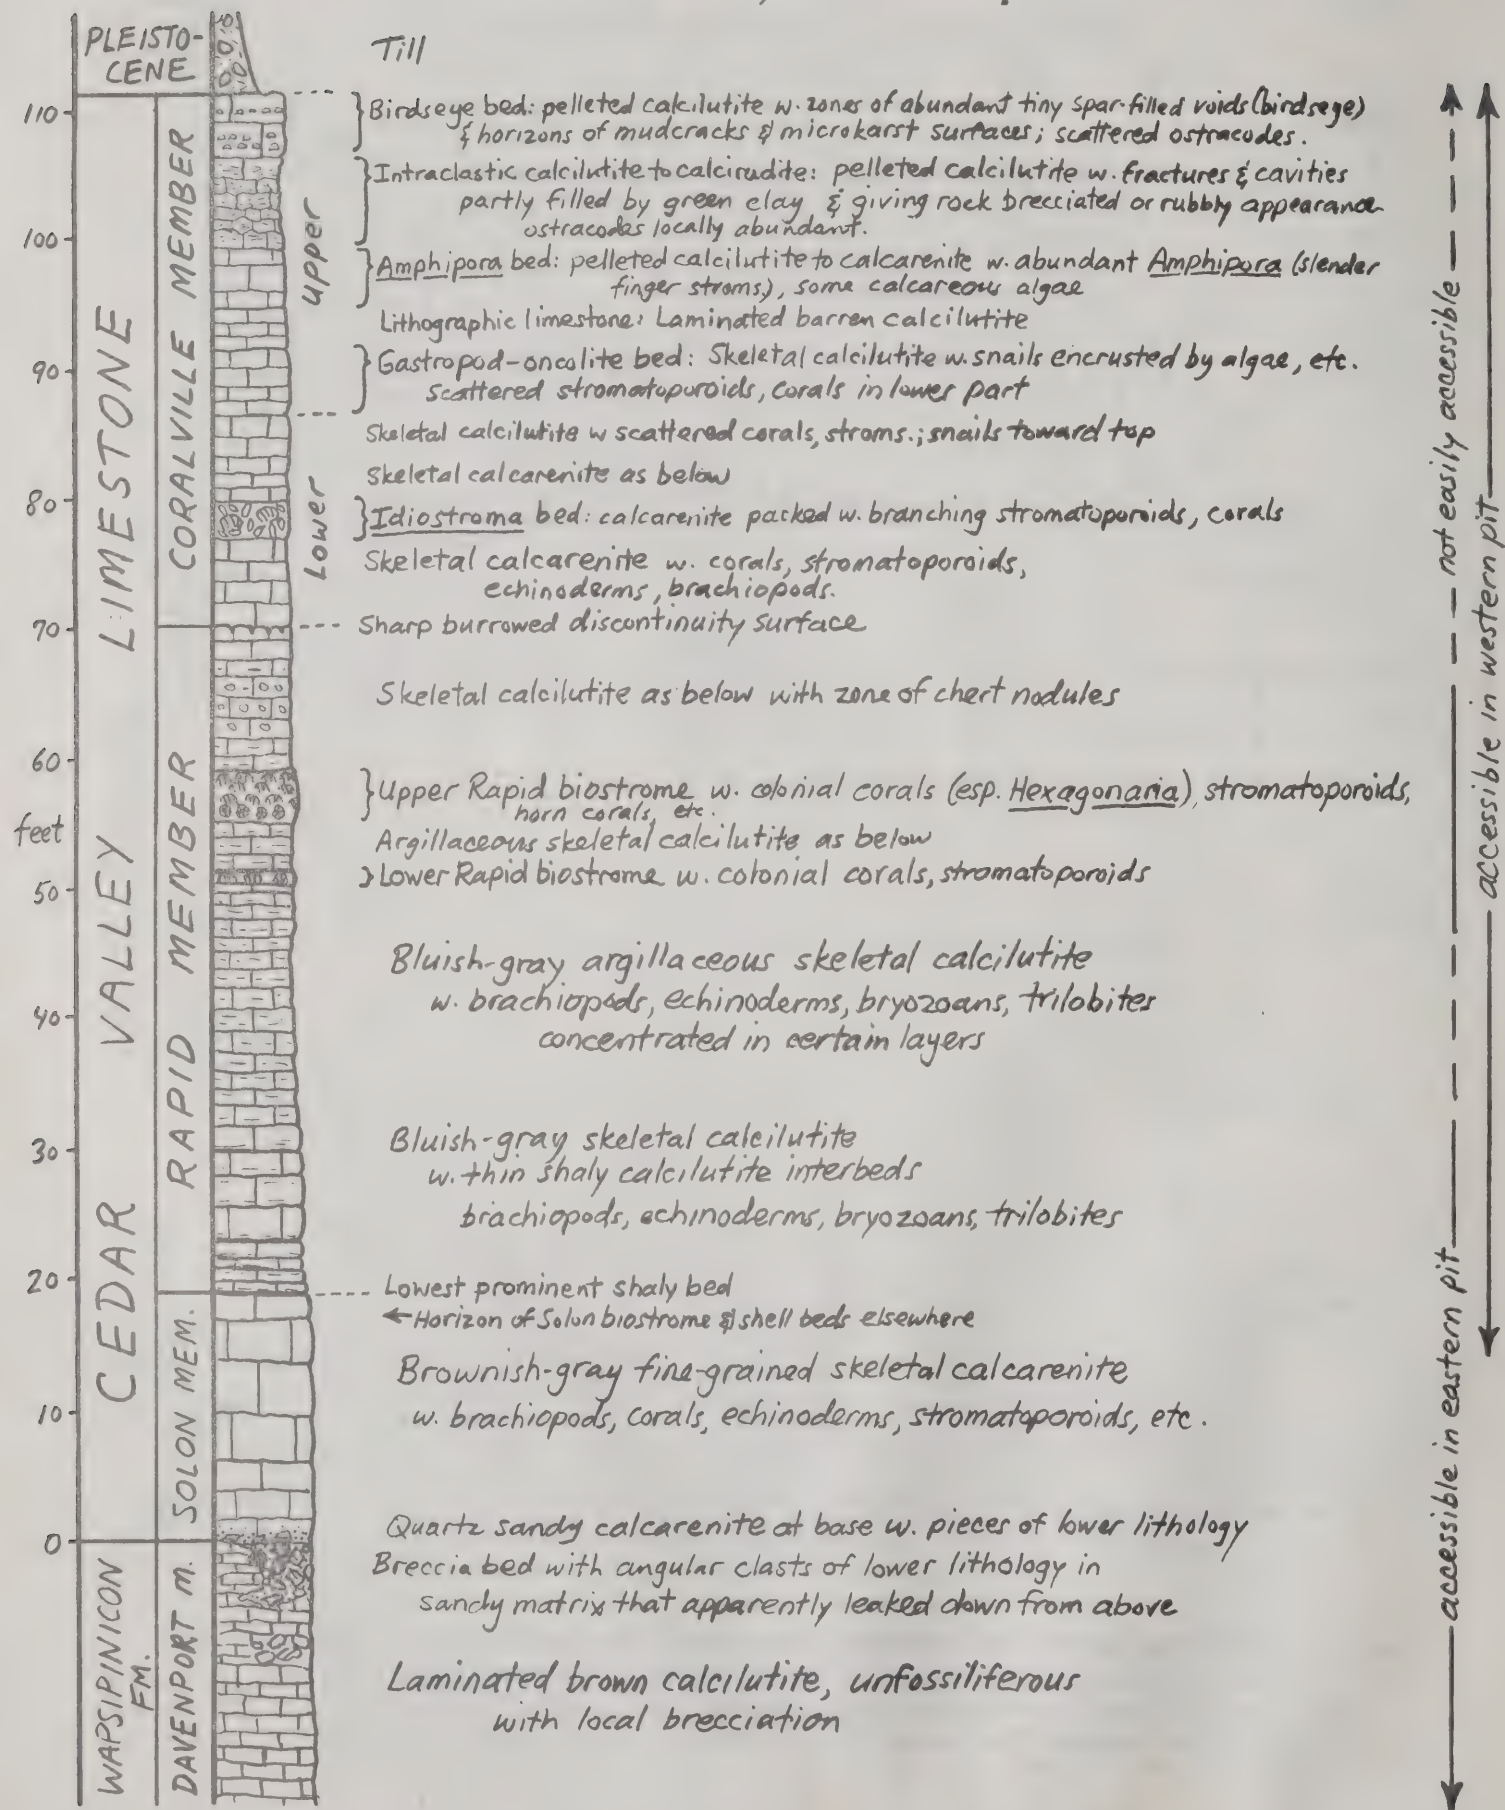 PLEISTO-
CENE
Till
110
Birdseye bed: pelleted calcilutite w. zones of abundant tiny spar-filled voids (birdseye)
& horizons of mudcracks & microkarst surfaces; scattered ostracodes.
Intraclastic calcilutite to calcirudite: pelleted calcilutite w. fractures & cavities
partly filled by green clay & giving rock brecciated or rubbly appearance
ostracodes locally abundant.
100
Amphipora bed: pelleted calcilutite to calcarenite w. abundant Amphipora (slender
finger stroms.), some calcareous algae
Lithographic limestone: Laminated barren calcilutite
90
Gastropod-oncolite bed: Skeletal calcilutite w. snails encrusted by algae, etc.
Scattered stromatoporoids, corals in lower part
Upper
Skeletal calcilutite w scattered corals, stroms.; snails toward top
Skeletal calcarenite as below
80
Idiostroma bed: calcarenite packed w. branching stromatoporoids, corals
Skeletal calcarenite w. corals, stromatoporoids,
echinoderms, brachiopods.
Lower
CORALVILLE MEMBER
70
Sharp burrowed discontinuity surface
Skeletal calcilutite as below with zone of chert nodules
60
Upper Rapid biostrome w. colonial corals (esp. Hexagonaria), stromatoporoids,
horn corals, etc.
feet
Argillaceous skeletal calcilutite as below
Lower Rapid biostrome w. colonial corals, stromatoporoids
50
Bluish-gray argillaceous skeletal calcilutite
w. brachiopods, echinoderms, bryozoans, trilobites
concentrated in certain layers
40
30
Bluish-gray skeletal calcilutite
w. thin shaly calcilutite interbeds
brachiopods, echinoderms, bryozoans, trilobites
RAPID MEMBER
20
Lowest prominent shaly bed
←Horizon of Solon biostrome & shell beds elsewhere
Brownish-gray fine-grained skeletal calcarenite
w. brachiopods, corals, echinoderms, stromatoporoids, etc.
10
SOLON MEM.
CEDAR VALLEY LIMESTONE
Quartz sandy calcarenite at base w. pieces of lower lithology
0
Breccia bed with angular clasts of lower lithology in
sandy matrix that apparently leaked down from above
Laminated brown calcilutite, unfossiliferous
with local brecciation
WAPSIPINICON
FM.
DAVENPORT m.
accessible in eastern pit
not easily accessible
accessible in western pit